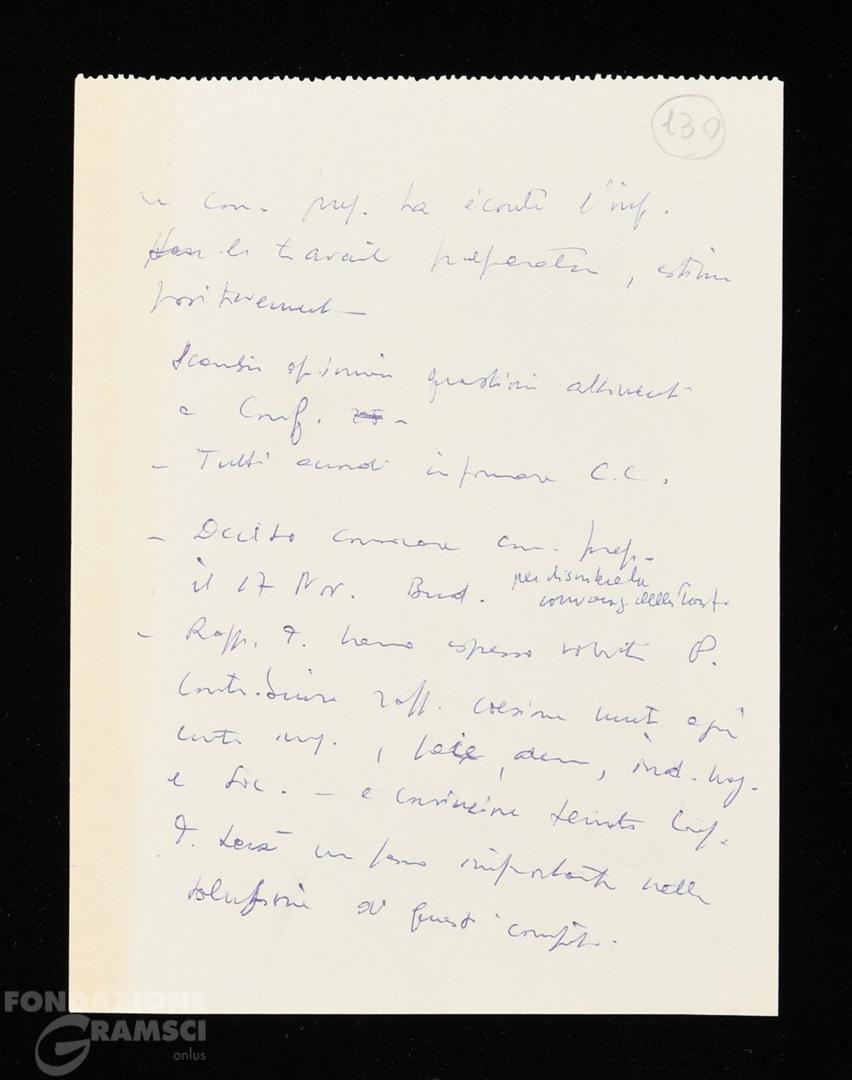 130
com. prep. ha écouté l'inf.
le travail preparation, estim
positivement
Scambio opinioni questioni attinenti
a Conf.
- Tutti accordi informare C.C.
- Deciso convocare com. prep.
il 17 Nov. Bud. per discutere la
convocaz. della Conf.
- Rapp. hanno espresso volontà P.
contribuire raff. coesione unità
lotta imp., paix, dem,
e soc. - e convinzione
un passo importante nella
soluzione di questi compiti.
FONDAZIONE
GRAMSCI
onlus